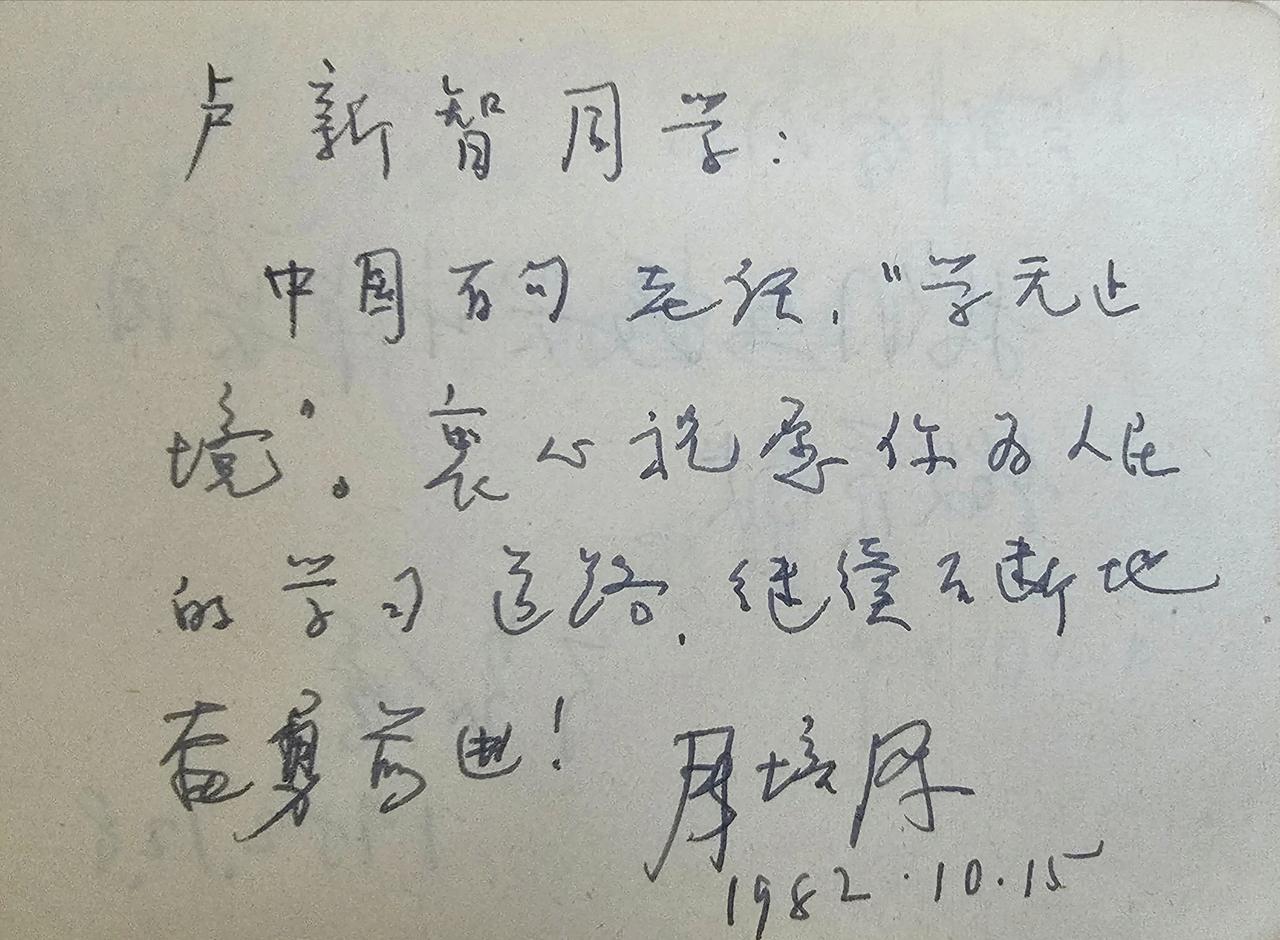 卢新智同学：
中国有句老话，“学无止
境”。衷心祝愿你为人民
的学习道路，继续不断地
奋勇前进！ 周培源
1982.10.15